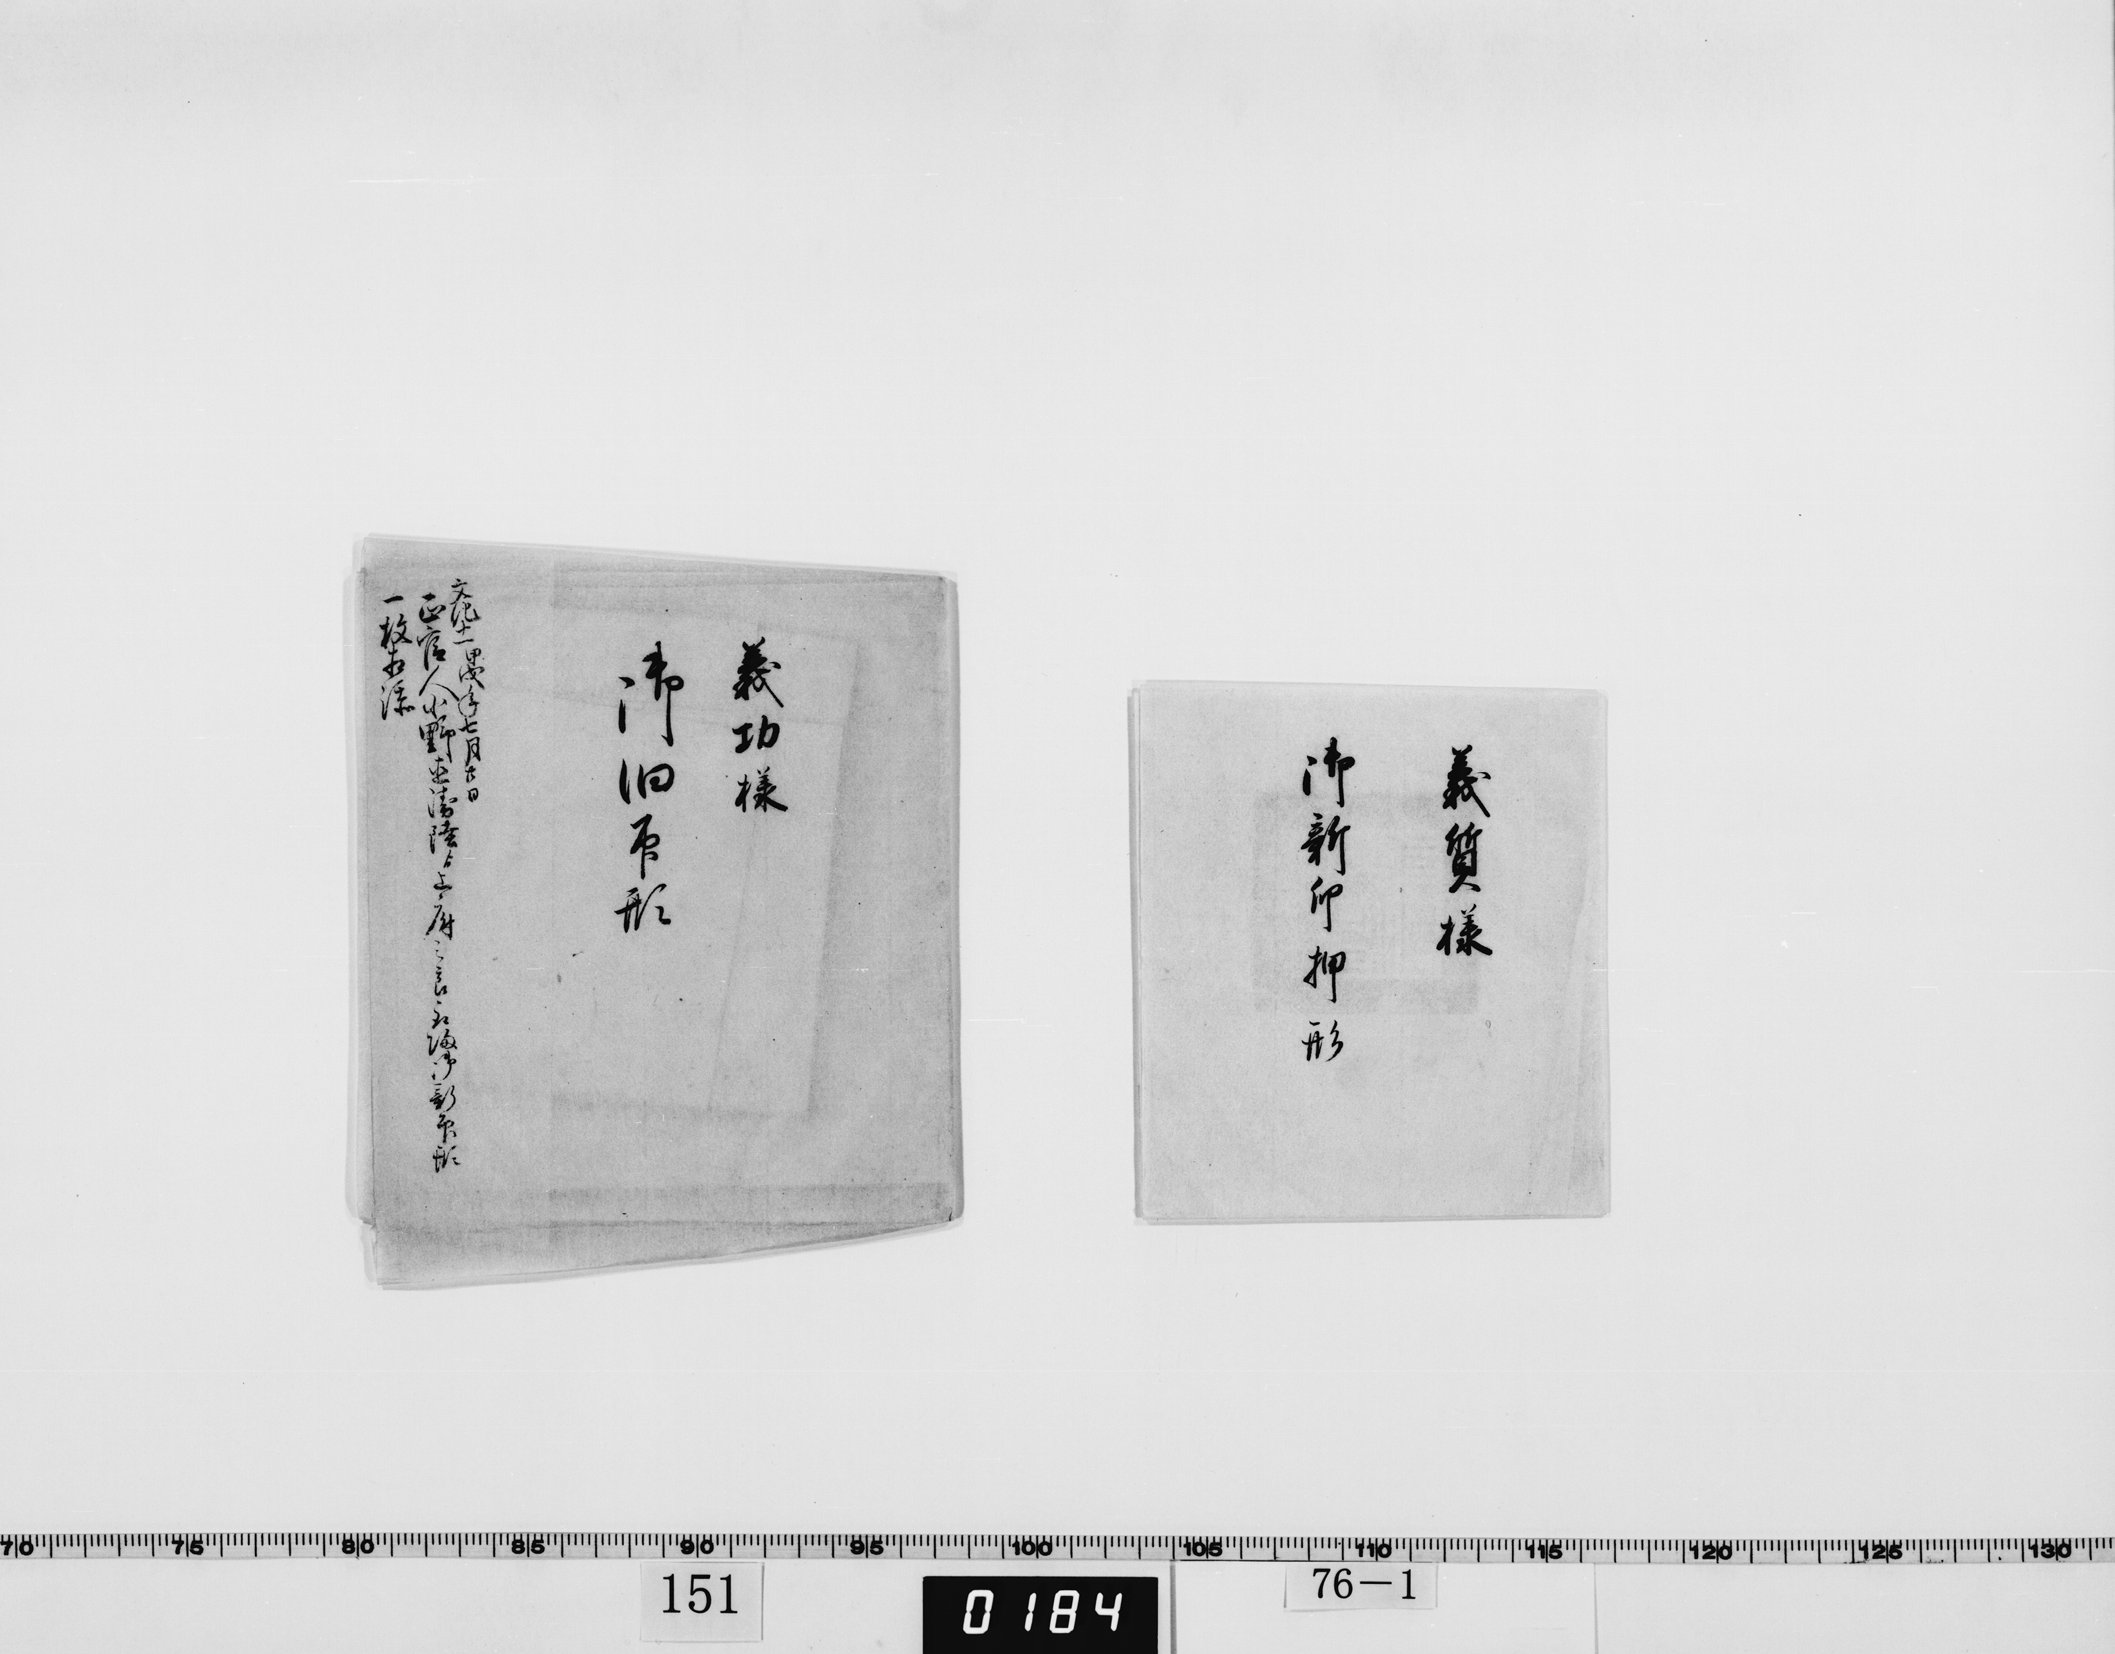 義質様
御新印押形
義功様
御旧印形
文化十一甲戌年七月廿五日
正官人小野直衛陸ゟ上府之節御新印形
一枚相添
70 75 80 85 90 95 100 105 110 115 120 125 130
151
0184
76-1